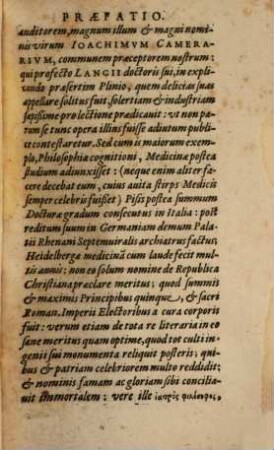 PRÆFATIO.
auditorem, magnum illum & magni nomi-
nis virum IOACHIMVM CAMERA-
RIVM, communem præceptorem nostrum:
qui profecto LANGII doctoris sui, in expli-
cando præsertim Plinio, quem delicias suas
appellare solitus fuit, solertiam & industriam
sæpissime pro lectione prædicauit: vt non pa-
rum se tunc opera illius fuisse adiutum publi-
ce contestaretur. Sed cum is maiorum exem-
plo, Philosophiæ cognitioni, Medicinæ postea
studium adiunxisset: (neque enim aliter fa-
cere decebat eum, cuius auita stirps Medicis
semper celebris fuisset) Pisis postea summum
Doctoræ gradum consecutus in Italia: post
reditum suum in Germaniam demum Pala-
tii Rhenani Septemuiralis archiatrus factus,
Heidelbergæ medicinã cum laude fecit mul-
tis annis: non eo solum nomine de Republica
Christiana præclare meritus; quod summis
& maximis Principibus quinque, & sacri
Roman. Imperii Electoribus a cura corporis
fuit: verum etiam de tota re literaria in eo
sane meritus quam optime, quod tot culti in-
genii sui monumenta reliquit posteris; qui-
bus & patriam celebriorem multo reddidit;
& nominis famam ac gloriam sibi concilia-
uit immortalem: vere ille ἰατρὸς φιλόσοφος,